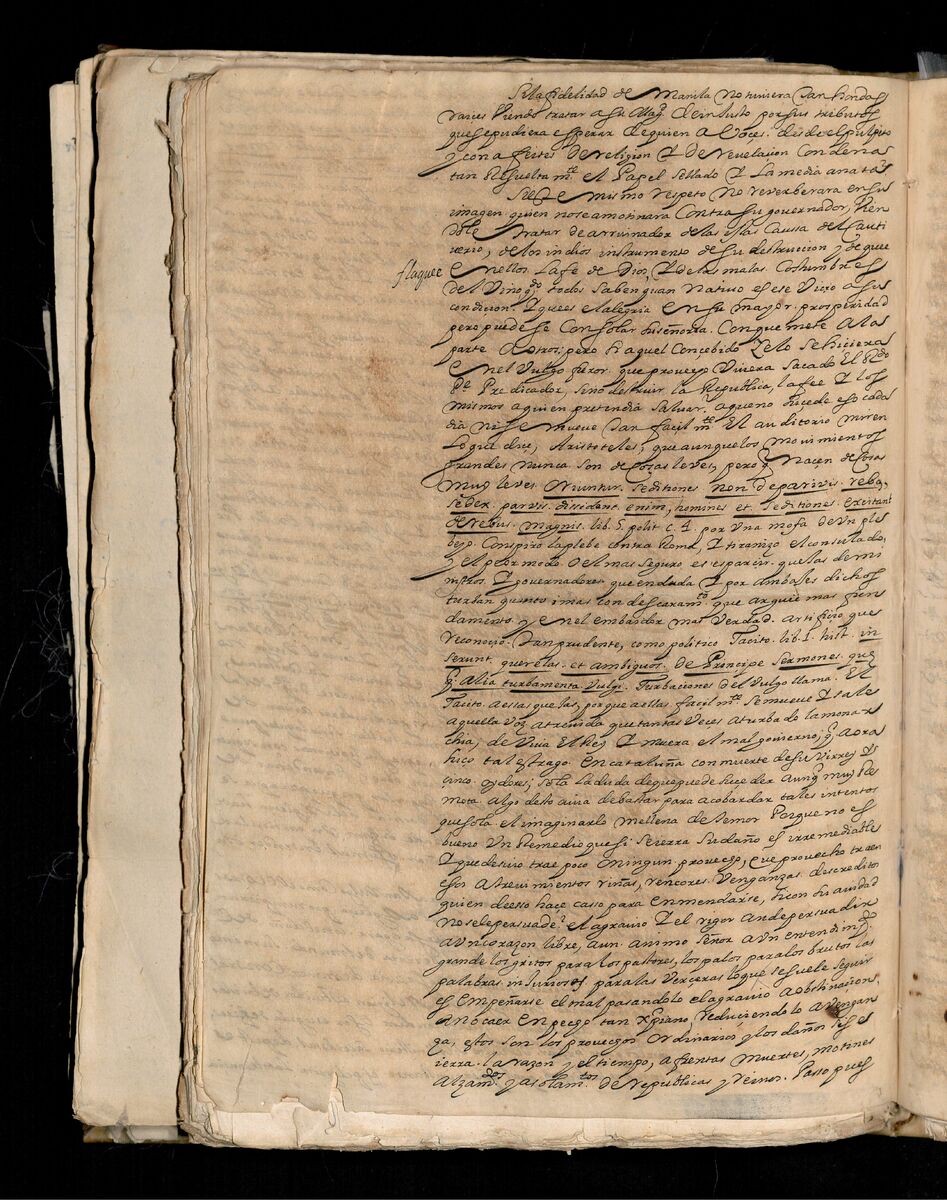 Si la fidelidad de Manila no tuviera tan hondas
raices viendo tratar a su Magd. de injusto por sus tributos
que se pudiera esperar de quien a voçes. desde el pulpito
y con afeites de religion y de revelacion condena
tan resuelta mte. el Papel sellado y la media anata
Si este mismo respeto no reverberara en su
imagen, quien no se amotinara contra su governador, vien
dole tratar de arruinador de las islas caussa del cauti
verio, de los indios instrumento de su destruccion y de que
flaquee
en ellos. la fe de Dios, y de las malas costumbres
del vino qdo. todos saben quan natiuo es ese vicio a su
condicion. y que es alegria en su mayor. prosperidad
pero puede se consolar su señoria. con que mete a la
parte a otros; pero si aquel concebido zelo se hiciera
en el vulgo furor. que provecho viuiera sacado el Rdo.
Pe. Predicador, sino destruir la Republica, la fee y los
mismos a quien pretendia saluar. a que no suçede eso cada
dia ni se mueve tan facil mte. el auditorio miren
lo que diçe, Aristoteles; que aunque los movimientos
grandes nunca son de cosas leves, pero q. naçen de cosas
muy leves. oriuntur. seditiones non de parvis. rebus,
sed ex. parvis. dissident. enim, homines et. seditiones. excitant
de rebus. magnis. lib. 5. polit c. 4. por una mofa de un ple
beyo. conspiro la plebe contra Roma, y tiranizo el consulado,
y el peor modo. del mas seguro es esparcir quejas de mi
nistros. y governadores que en duda y por ambajes dichos
turban quanto i mas con descaramto. que arguie mas fun
damento. y en el embaidor mas verdad. artificio que
reconocio. tan prudente, como politico Tacito. lib. 1. hist. in
serunt. querelas. et ambiguos. de Principe sermones. que
q. alia turbamenta vulgi. Turbaciones del vulgo llama. El
Tacito. a esas quejas, porque a ellas facil mte. se mueve y sale
aquella voz atrevida que tantas veces a turbado la monar
chia, de viva el Rey y muera el mal govierno; q. aora
hiço tal estrago. en cataluña con muerte de su virrey y
cinco. oydores; sola la duda de que puede suçeder aunq. muy re
mota. algo desto avia de bastar para acobardar tales intentos
que sola el imaginarlo me llena de temor Porque no es
bueno un remedio que si se ierra su daño es irremediable
y que de suio trae poco o ningun. provecho, que provecho traen
esos atrevimientos riñas, rencores. venganzas. descreditos
quien de esso haçe caso para enmendarse, si con suavidad
no se le persuade? el agravio y el rigor an de persuadir
a un corazon libre, a un. animo señor a un entendimto.
grande los gritos para los pastores, los palos para los brutos las
palabras injuriosas para las verceras lo que se suele seguir
es empeñarse el mal pasandolo el agravio a obstinacion.
a no caer en pecho tan xpiano, reduciendolo a vengan
za, estos son los provechos ordinarios y los daños si se
ierra. la razon y el tiempo, afrentas muertes, motines
alzamdos. y asolamtos. de republicas y reinos. Passo pues